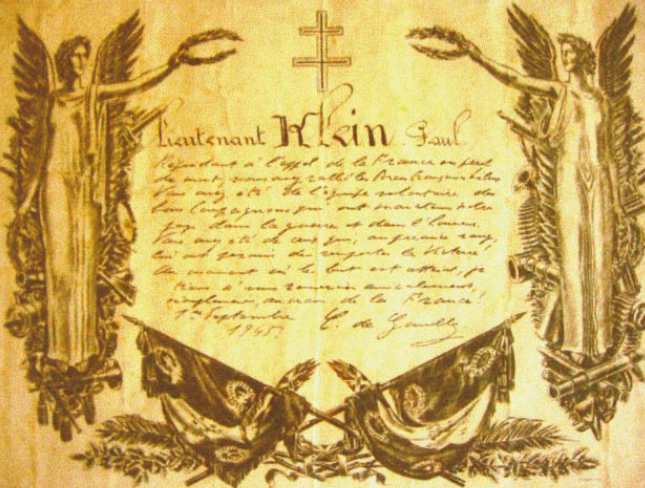 Lieutenant Klein Paul
Répondant à l'appel de la France en péril
de mort, vous avez rallié les Forces françaises libres
Vous avez été de l'équipe volontaire des
bons compagnons qui ont maintenu notre
pays dans la guerre et dans l'honneur.
Vous avez été de ceux qui, au premier rang,
lui ont permis de remporter la Victoire
Au moment où le but est atteint, je
tiens à vous remercier amicalement,
simplement, au nom de la France!
1er Septembre
1945. C. de Gaulle